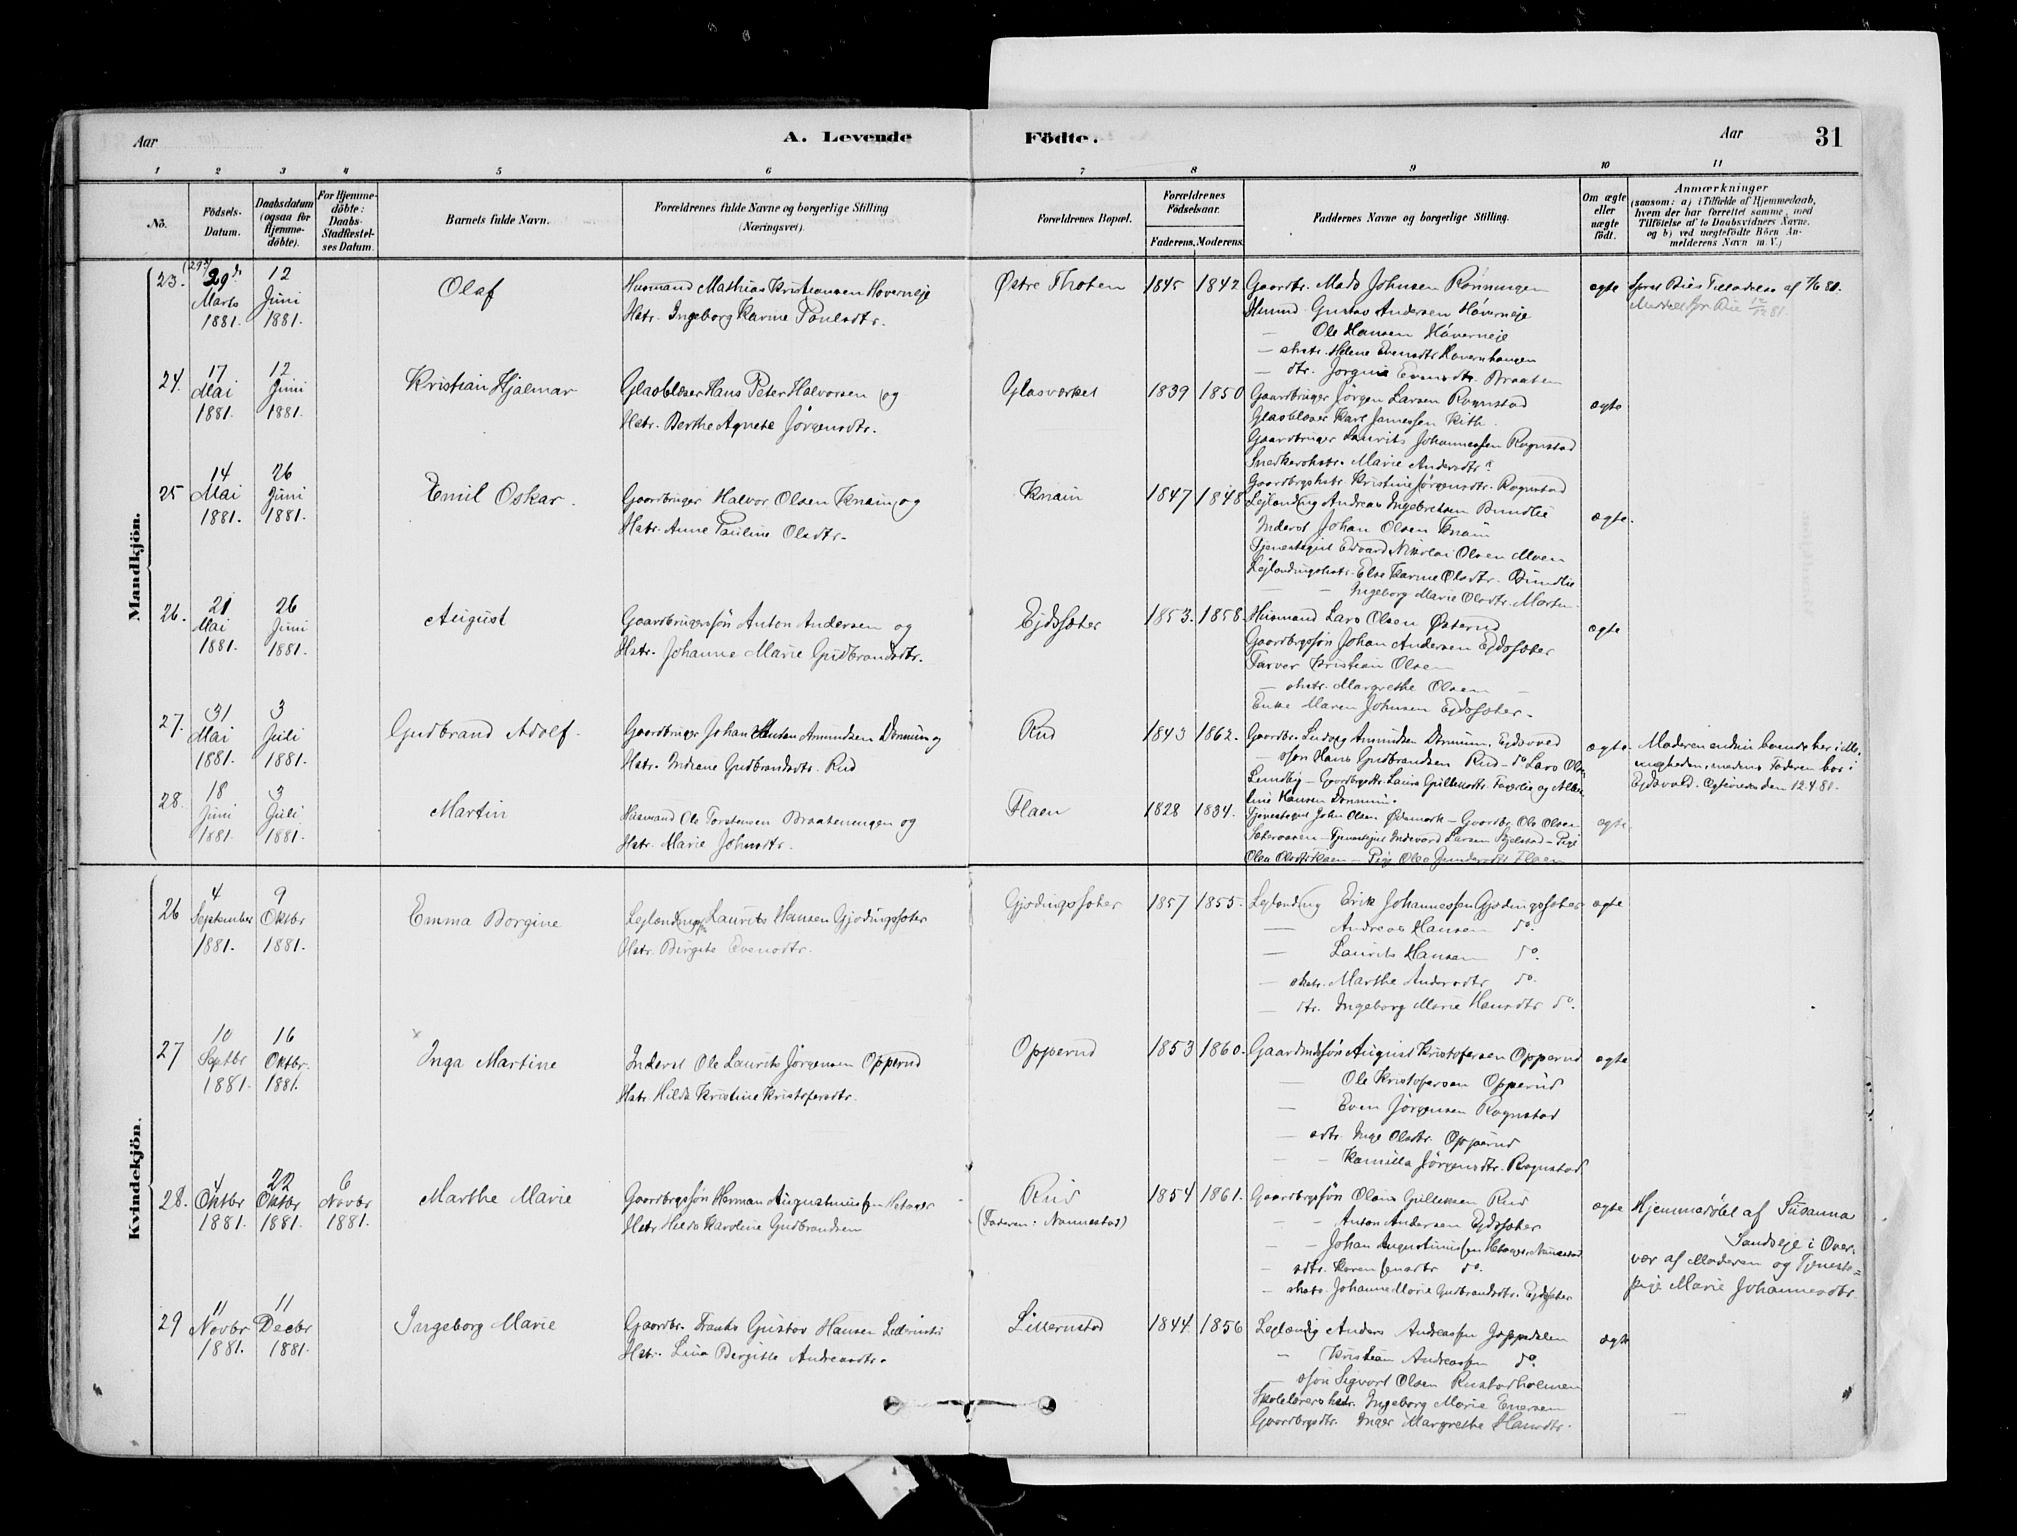 Aar
A. Levende
Födte.
Aar
31
1 2 3 4 5 6 7 8 9 10 11
No.
Födsels-Datum.
Daabsdatum (ogsaa for Hjemmedöbte).
For Hjemmedöbte: Daabs-Stadfæstelses Datum.
Barnets fulde Navn.
Forældrenes fulde Navne og borgerlige Stilling (Næringsvei).
Forældrenes Bopæl.
Forældrenes Födselsaar.
Faderens. Moderens.
Faddernes Navne og borgerlige Stilling.
Om ægte eller uægte födt.
Anmærkninger
(saasom: a) i Tilfælde af Hjemmedaab,
hvem der har forrettet samme, med
Tilföielse af to Daabsvidners Navne,
og b) ved uægtefödte Börn An-
melderens Navn m. V.)
Mandkjön.
23. 29de Marts 1881. 12 Juni 1881.
Olaf
Husmand Mathias Kristiansen Hoverneje
Hstr. Ingeborg Karine Paulsdtr.
Østre Thoten
1845 1842
Gaardbr. Mads Johnsen Rønningen
Husmd Gustav Andersen Høverneje
— Ole Hansen Höverneje
— shstr. Helene Evensdtr Hovernhaugen
— dtr. Jørgine Evensdtr. Braaten
ægte
24. 17 Mai 1881. 12 Juni 1881.
Kristian Hjalmar
Glasblæser Hans Peter Halvorsen og
Hstr. Berthe Agnete Jørgensdtr.
Glasværket
1839 1850
Gaardbruger Jörgen Larsen Rognstad
Glasblæser Karl Jamessen Kith
Gaardbruger Laurits Johannessen Rognstad
Snedkershstr. Marie Andersdtr
Gaardbrgshstr. Kristine Jørgensdtr. Rognstad
ægte
25 14 Mai 1881. 26 Juni 1881.
Emil Oskar.
Gaardbruger Halvor Olsen Knain og
Hstr. Anne Pauline Olsdtr.
Knain
1847 1848
Lejlending Andreas Ingebretsen Bundlie
Inderst Johan Olsen Knain
Tjenestegut Edvard Nikolai Olsen Moen
Lejlendingshstr. Else Karine Olsdtr. Bundlie
— — Ingeborg Marie Olsdtr. Morten
ægte.
26. 21 Mai 1881. 26 Juni 1881.
August
Gaardbrugersøn Anton Andersen og
Hstr. Johanne Marie Gudbrandsdtr.
Ejdssæter
1853. 1858.
Husmand Lars Olsen Østerud
Gaardbrgssøn Johan Andersen Ejdssæter
Farver Kristian Olsen
— shstr. Margrethe Olsen —
Enke Maren Johnsen Ejdssæter.
ægte
27. 31 Mai 1881. 3 Juli 1881.
Gudbrand Adolf.
Gaardbruger Johan Anton Amundsen Dönnum og
Hstr. Indiane Gudbrandsdtr. Rud
Rud
1843 1862.
Gaardbr. Ludvig Amundsen Dönnum, Ejdsvold
— søn Hans Gudbrandsen Rud — do Lars Ols.
Lundby — Gaardbrgdtr. Laura Gulliksdtr. Fagerlie og Albertine Hansen Dönnum.
ægte
Moderen endnu boende her i Me-
nigheden, medens Faderen bor i
Ejdsvold. Ægteviedes den 12.4.81.
28. 18 Juni 1881. 3 Juli 1881.
Martin
Husmand Ole Torstensen Braatenengen og
Hstr. Marie Johnsdtr.
Flaen
1828 1834.
Tjenestegut John Olsen Ødemark — Gaardbr. Ole Olsen
Sæteraasen — Tjenestegut Larsen Bjelstad — Pige
Olea Olsdtr Flaen — Pige Olea Gundersdtr Flaen
ægte
Kvindekjön.
26 4 September 1881. 9 Oktbr 1881.
Emma Borgine
Lejlending Laurits Hansen Gjødingssæter
Hstr. Birgite Evensdtr.
Gjødingssæter
1857 1855.
Lejlending Erik Johannessen Gjødingssæter
— Andreas Hansen do.
— Laurits Hansen do.
— shstr. Marthe Andersdtr do.
— dtr. Ingeborg Marie Hansdtr do.
ægte
27 10 Septbr 1881. 16 Oktbr. 1881.
Inga Martine
Inderst Ole Laurits Jørgensen Opperud
Hstr. Hilda Kristine Kristofersdtr.
Opperud
1853 1860.
Gaardmdssøn August Kristofersen Opperud
— Ole Kristofersen Opperud
— Even Jörgensen Rognstad
— sdtr. Inge Olsdtr. Opperud
— — Kamilla Jørgensdtr. Rognstad
ægte
28. 4 Oktbr 1881. 22 Oktbr 1881. 6 Novbr 1881.
Marthe Marie
Gaardbrgssøn Herman Augustinussen Hstr Hilda Karoline Gudbrandsen
Rud
(Faderen: Nannestad)
1854 1861.
Gaardbrgssøn Olaus Gulliksen Rud
— — Anton Andersen Ejdssæter
— — Johan Augustinussen Nannestad
— sdtr. Karen do.
— shstr. Johanne Marie Gudbrandsdtr. Ejdssæter
ægte
Hjemmedöbt af Susanna
Sandseje i Over-
vær af Moderen og Tjeneste-
pige Marie Johannesdtr
29 11 Novbr 1881. 11 Decbr 1881.
Ingeborg Marie
Gaardbr. Frants Gustav Hansen Lillernstd
Hstr. Lina Bergitte Andreasdtr.
Lillernstad
1844 1856
Lejlændig Anders Andreassen Joppedalen
— Kristian Andreassen do.
— søn Sigvart Olsen Rustadholmen
Skolelærershstr. Ingeborg Marie Enersen
Gaardbrgsdtr. Inger Margrethe Hansdtr.
ægte